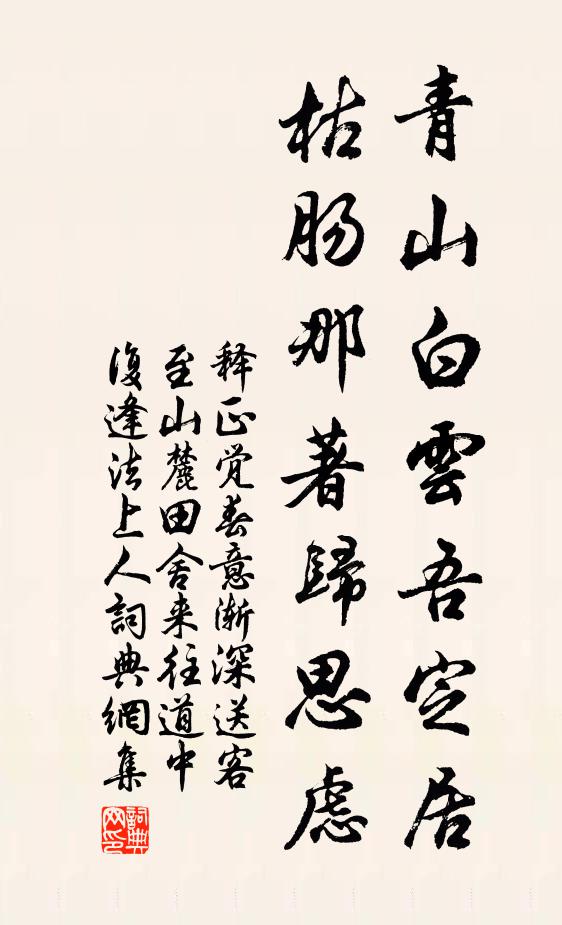 青山白雲吾定居
枯肠那著歸思慮
释正觉春意渐深送客
至山麓田舍来往道中
復逢法上人詞典網集
詞典
网印